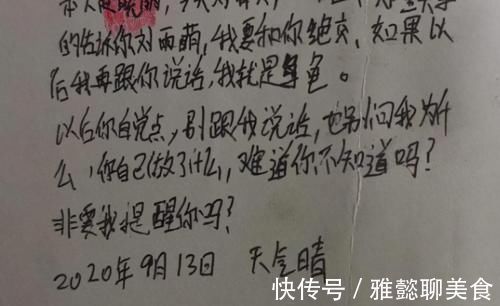 本人
的告诉你刘雨萌，我要和你绝交，如果以
后我再跟你说话，我就是龟。
以后你自觉点，别跟我说话，也别问我为什
么，你自己做了什么，难道你不知道吗？
非要我提醒你吗？
2020年9月13日 天气晴
快传号/雅懿聊美食